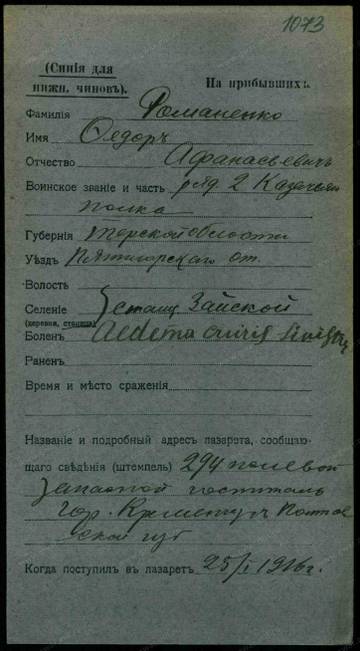 1073
(Синія для
нижн. чиновъ).
На прибывшихъ.
Фамилія Романенко
Имя Ѳедоръ
Отчество Афанасьевичъ
Воинское званіе и часть ряд. 2 Казачьяго
полка
Губернія Терской области
Уѣздъ Пятигорскаго от.
Волость
Селеніе станиц.
(деревня, станица)
Боленъ
Раненъ
Время и мѣсто сраженія
Названіе и подробный адресъ лазарета, сообщаю-
щаго свѣдѣнія (штемпель) 294 полевой
запасной госпиталь
гор. Кременчугъ Полтав
ской губ
Когда поступилъ въ лазаретъ 25/I 1916г.